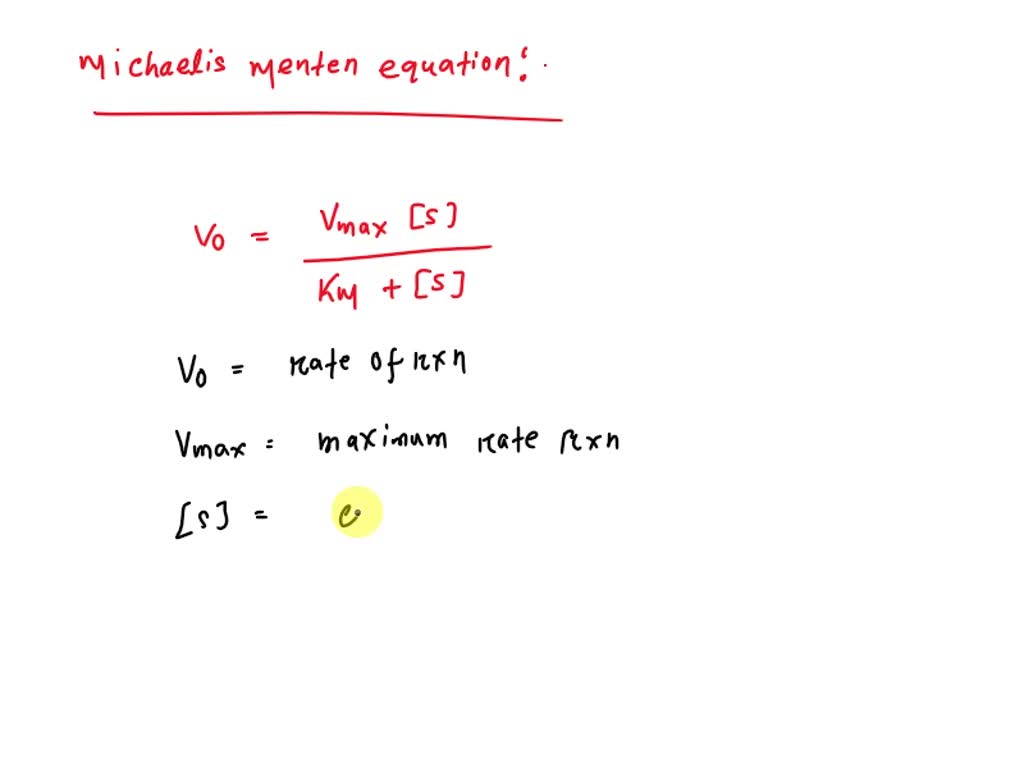 Michaelis menten equation:
V0 = Vmax [S]
Km + [S]
V0 = rate of rxn
Vmax = maximum rate rxn
[S] = c